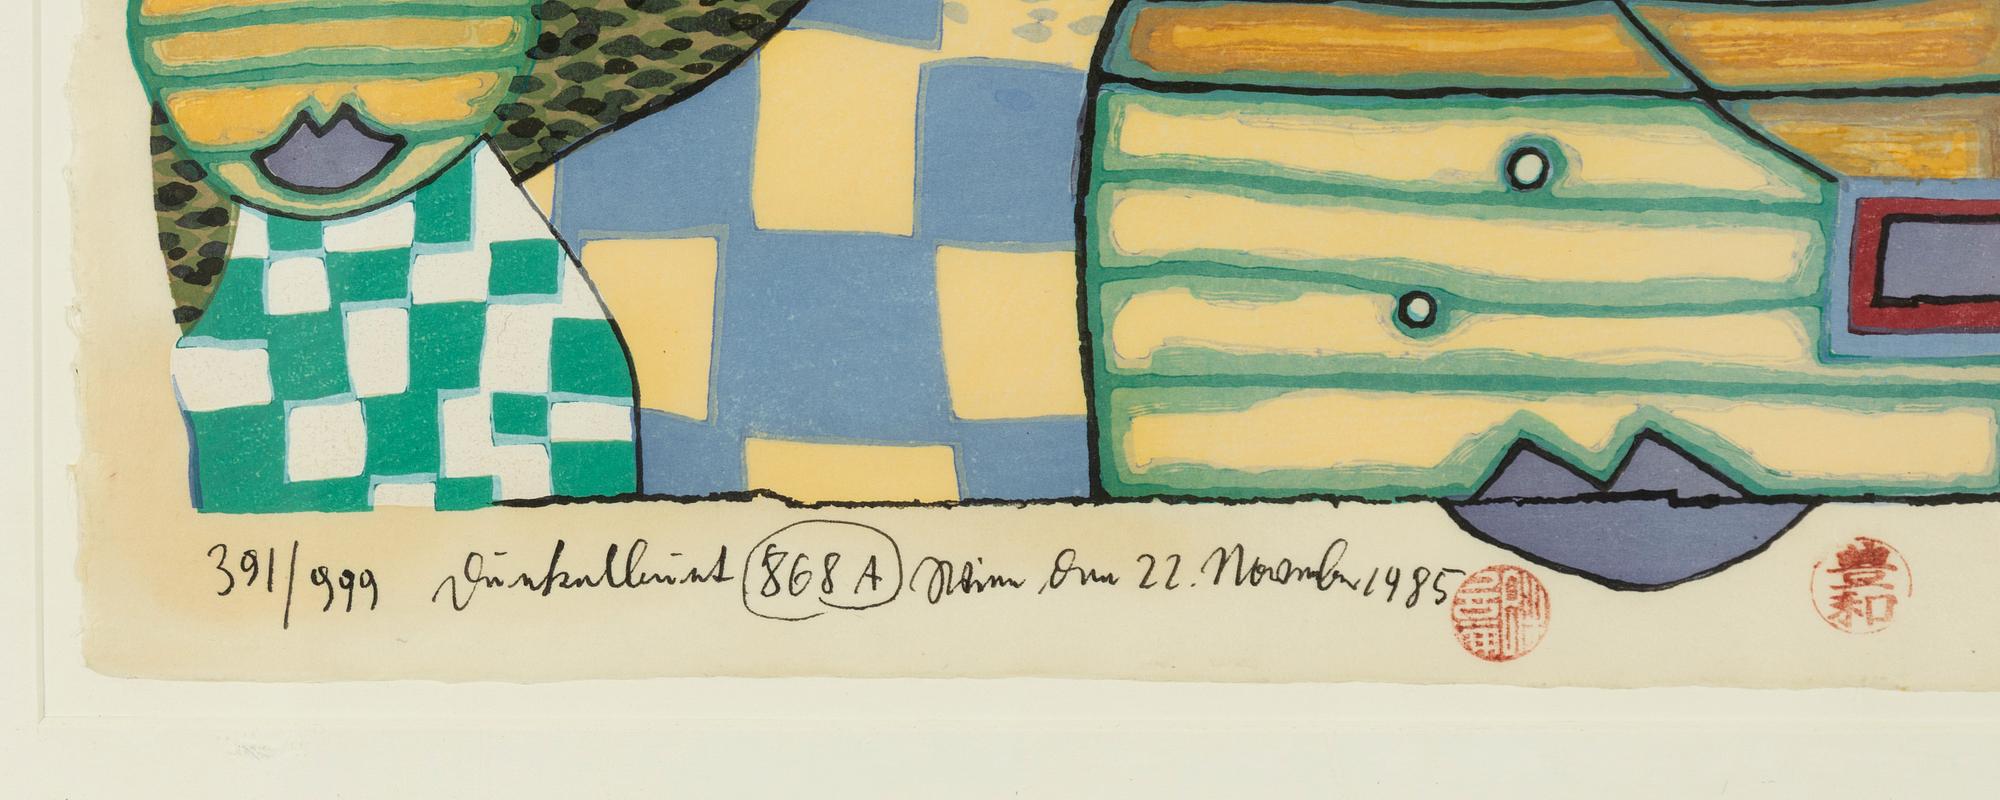 391/999 Dunkelbunt 868 A Wien den 22. November 1985
豊和